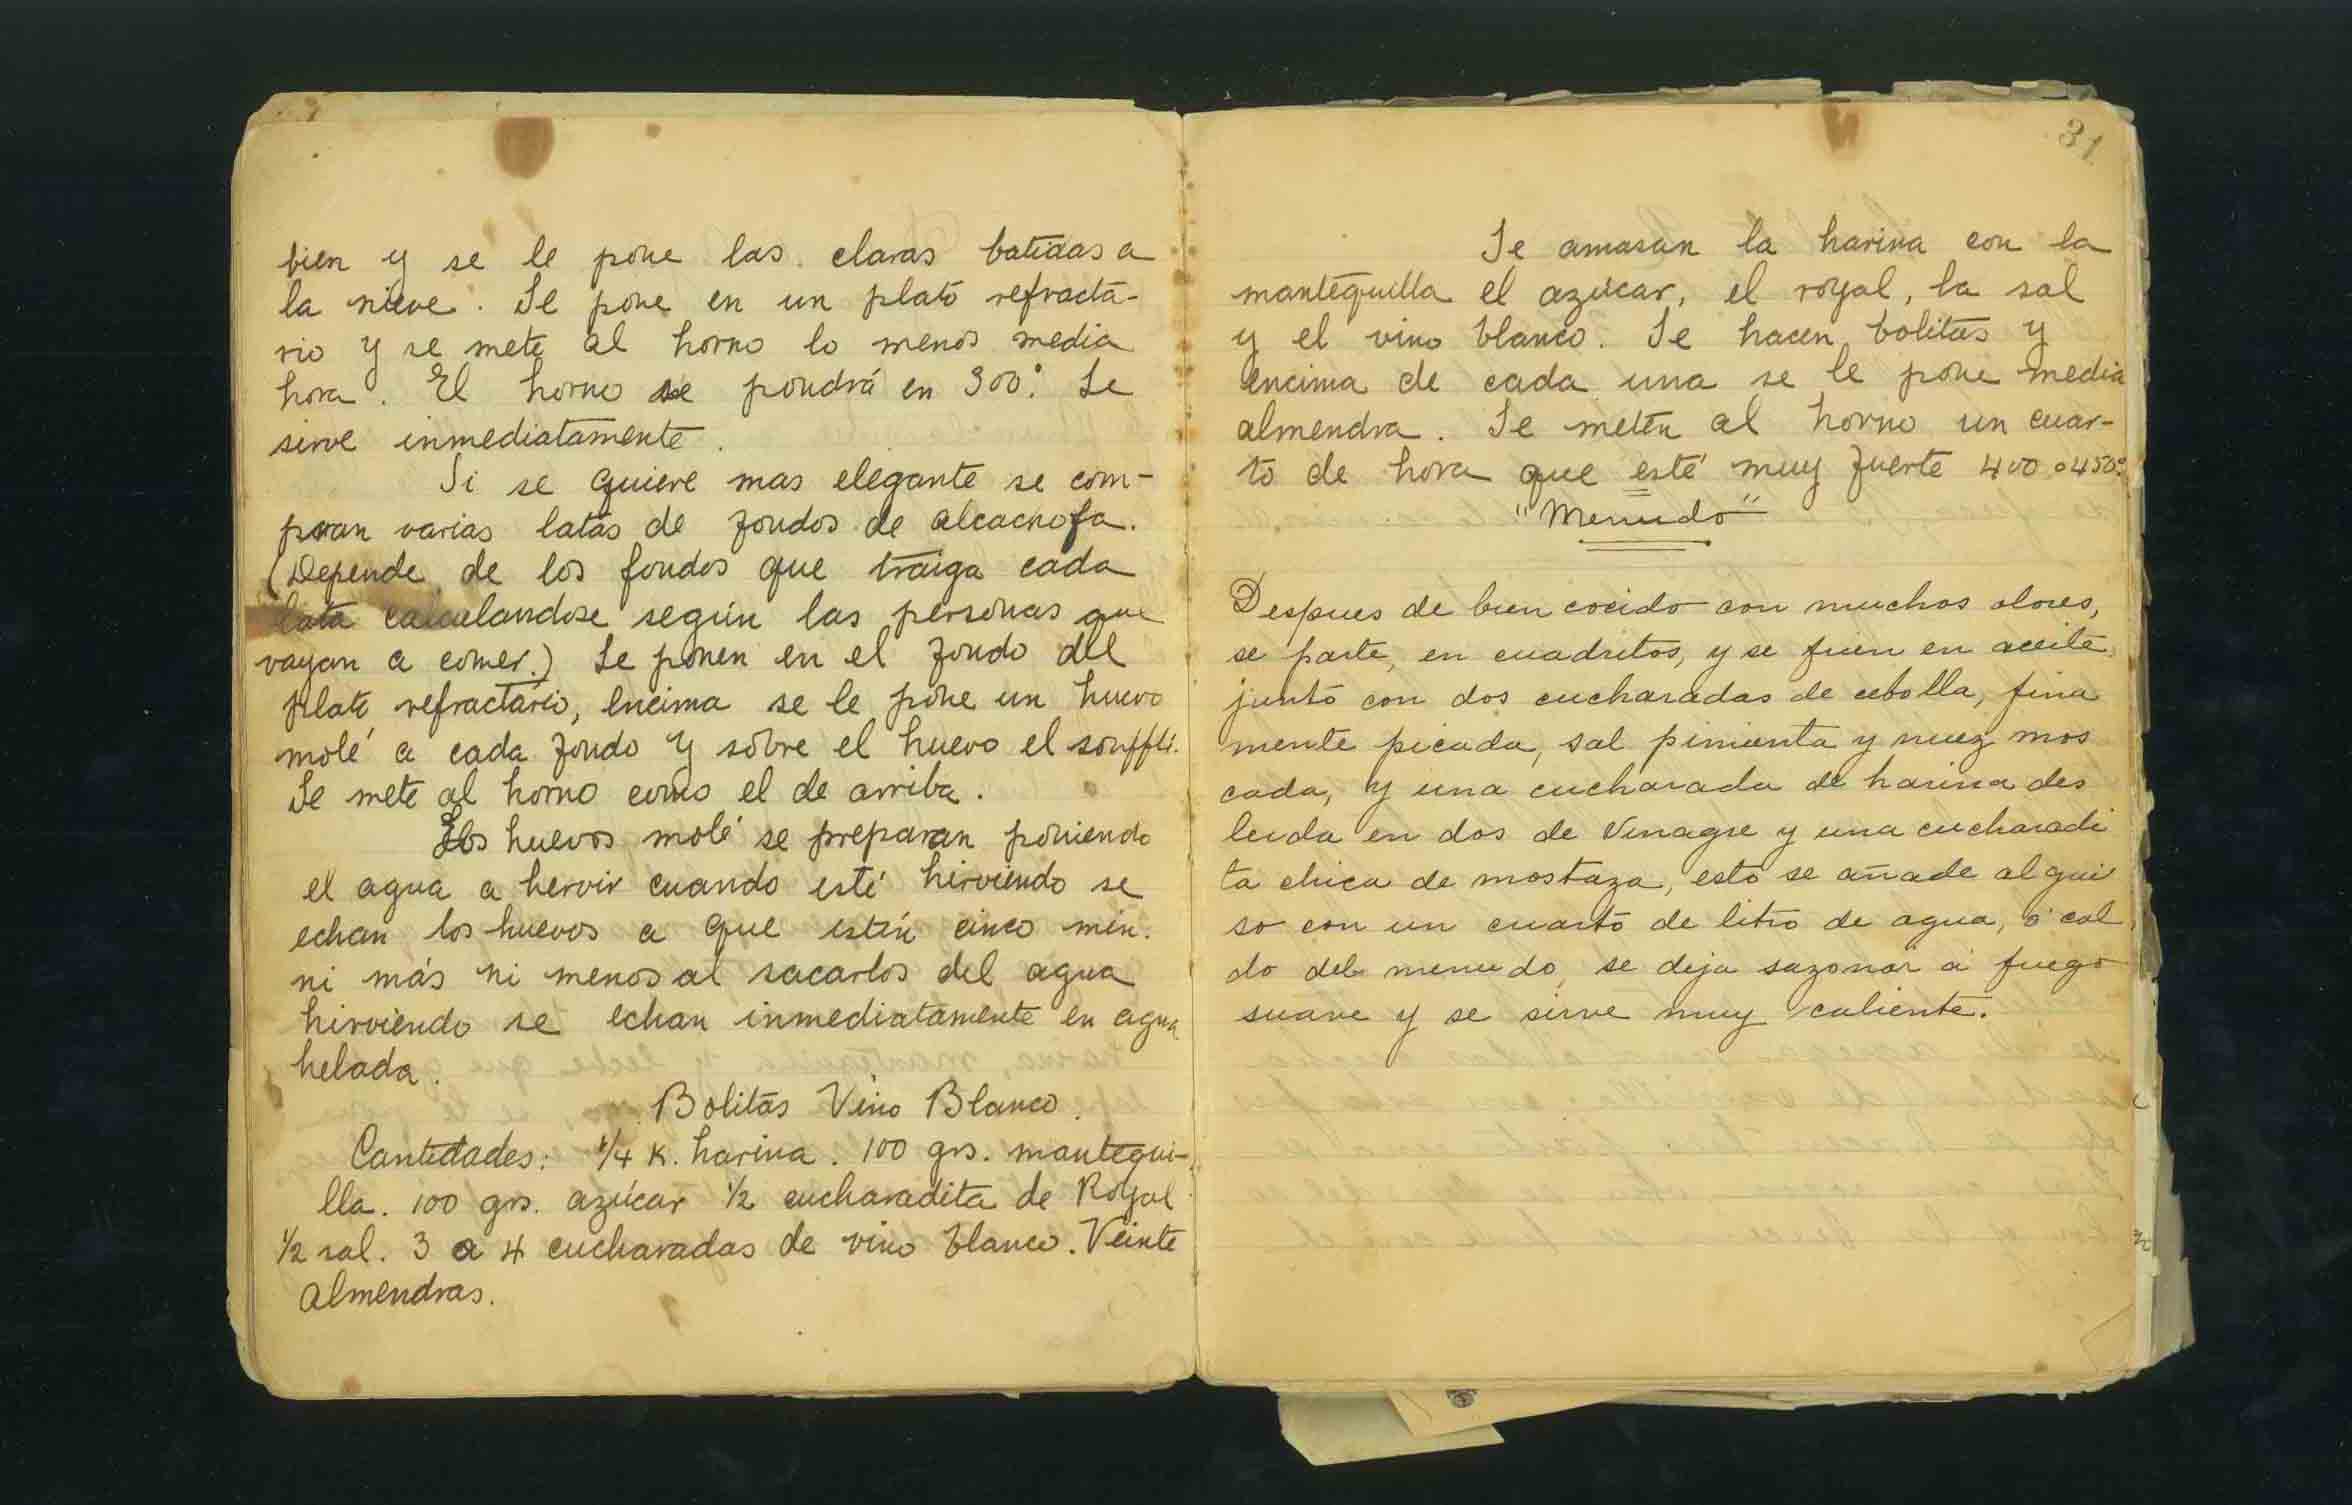 bien y se le pone las claras batidas a
la nieve. Se pone en un plato refracta-
rio y se mete al horno lo menos media
hora. El horno se pondrá en 300.° Se
sirve inmediatamente.
Si se quiere mas elegante se com-
pran varias latas de fondos de alcachofa.
(Depende de los fondos que traiga cada
lata calculandose según las personas que
vayan a comer.) Se ponen en el fondo del
plato refractario, encima se le pone un huevo
molé a cada fondo y sobre el huevo el soufflé.
Se mete al horno como el de arriba.
Los huevos molé se preparan poniendo
el agua a hervir cuando esté hirviendo se
echan los huevos a que estén cinco min.
ni más ni menos al sacarlos del agua
hirviendo se echan inmediatamente en agua
helada.
Bolitas Vino Blanco.
Cantidades: 1/4 K. harina. 100 grs. mantequi-
lla. 100 grs. azúcar 1/2 cucharadita de Royal
1/2 sal. 3 a 4 cucharadas de vino blanco. Veinte
almendras.
31
Se amasan la harina con la
mantequilla el azúcar, el royal, la sal
y el vino blanco. Se hacen bolitas y
encima de cada una se le pone media
almendra. Se meten al horno un cuar-
to de hora que esté muy fuerte 400 o 450.°
"Menudo"
Despues de bien cocido con muchos olores,
se parte, en cuadritos, y se frien en aceite,
junto con dos cucharadas de cebolla, fina
mente picada, sal pimienta y nuez mos
cada, y una cucharada de harina des
leida en dos de Vinagre y una cucharadi
ta chica de mostaza, esto se añade al gui
so con un cuarto de litro de agua, ó cal
do del menudo, se deja sazonar á fuego
suave y se sirve muy caliente.